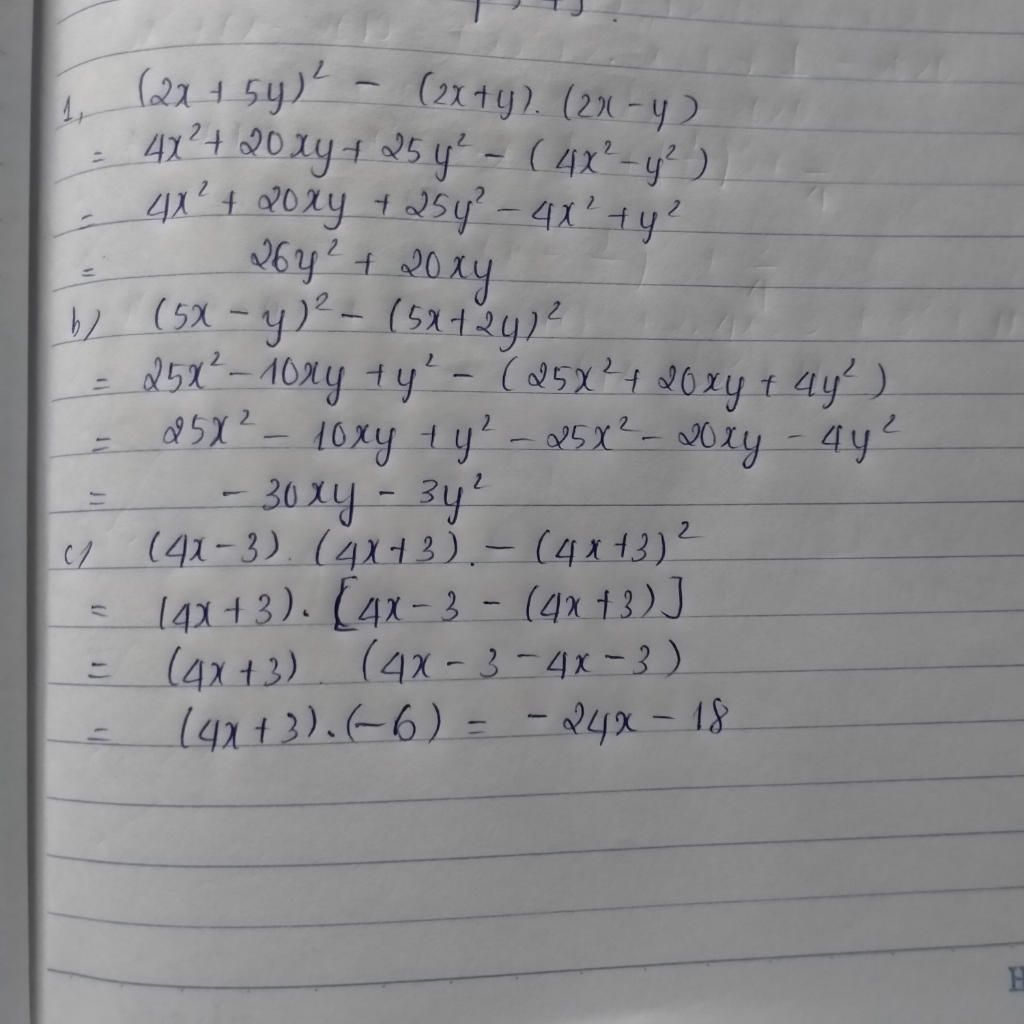 1, (2x + 5y)² - (2x+y). (2x-y)
= 4x² + 20xy + 25y² - (4x² - y²)
= 4x² + 20xy + 25y² - 4x² + y²
= 26y² + 20xy
b) (5x - y)² - (5x+2y)²
= 25x² - 10xy + y² - (25x² + 20xy + 4y²)
= 25x² - 10xy + y² - 25x² - 20xy - 4y²
= - 30xy - 3y²
c) (4x-3). (4x+3). - (4x+3)²
= (4x+3). [4x-3 - (4x+3)]
= (4x+3). (4x-3-4x-3)
= (4x+3).(-6) = -24x - 18